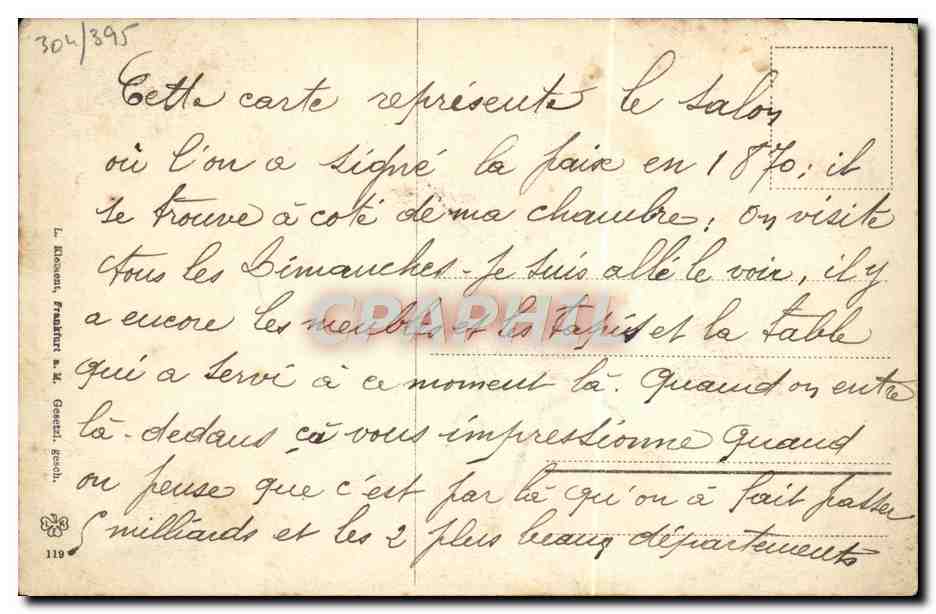 304/395
Cette carte représente le salon
où l'on a signé la paix en 1870; il
se trouve à coté de ma chambre; on visite
tous les Dimanches - Je suis allé le voir, il y
a encore les meubles et les tapis et la table
qui a servi à ce moment là. Quand on entre
là-dedans cà vous impressionne quand
on pense que c'est par là qu'on à fait passer
5 milliards et les 2 plus beaux départements
L. Klement, Frankfurt a. M. Gesetzl. gesch.
119
CPARPHIL